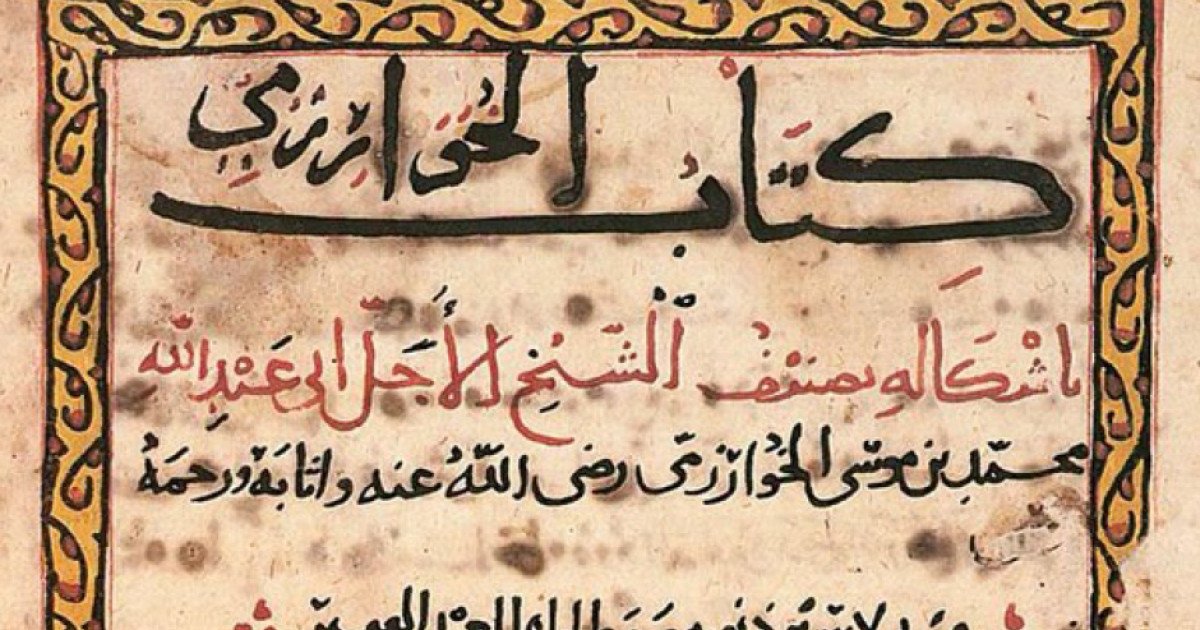 كتاب الخوارزمي
باشكاله تصنيف الشيخ الأجل ابي عبد الله
محمد بن موسى الخوارزمى رضى الله عنه واثابه ورحمه